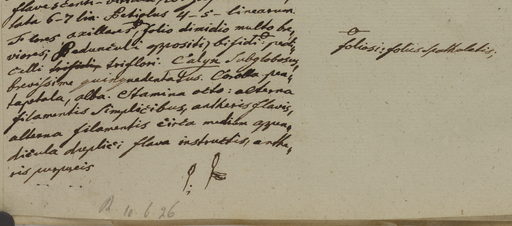 lata 6-7 lin: Petiolus 4-5-linearum
Flores axillares, folio dimidio multo bre,
viores; Pedunculi oppositi, bifidi: pedi,
celli trifidi triflori. Calyx Subglobosus,
brevissime quinquedentatus. Corolla pen,
tapetala, alba. Stamina octo: alterna
filamentis simplicibus, antheris flavis,
alterna filamentis circa medium appen,
dicula duplici flava instructis, anthe,
ris purpureis
foliosi: foliis spathulatis;
R. 10.6.26